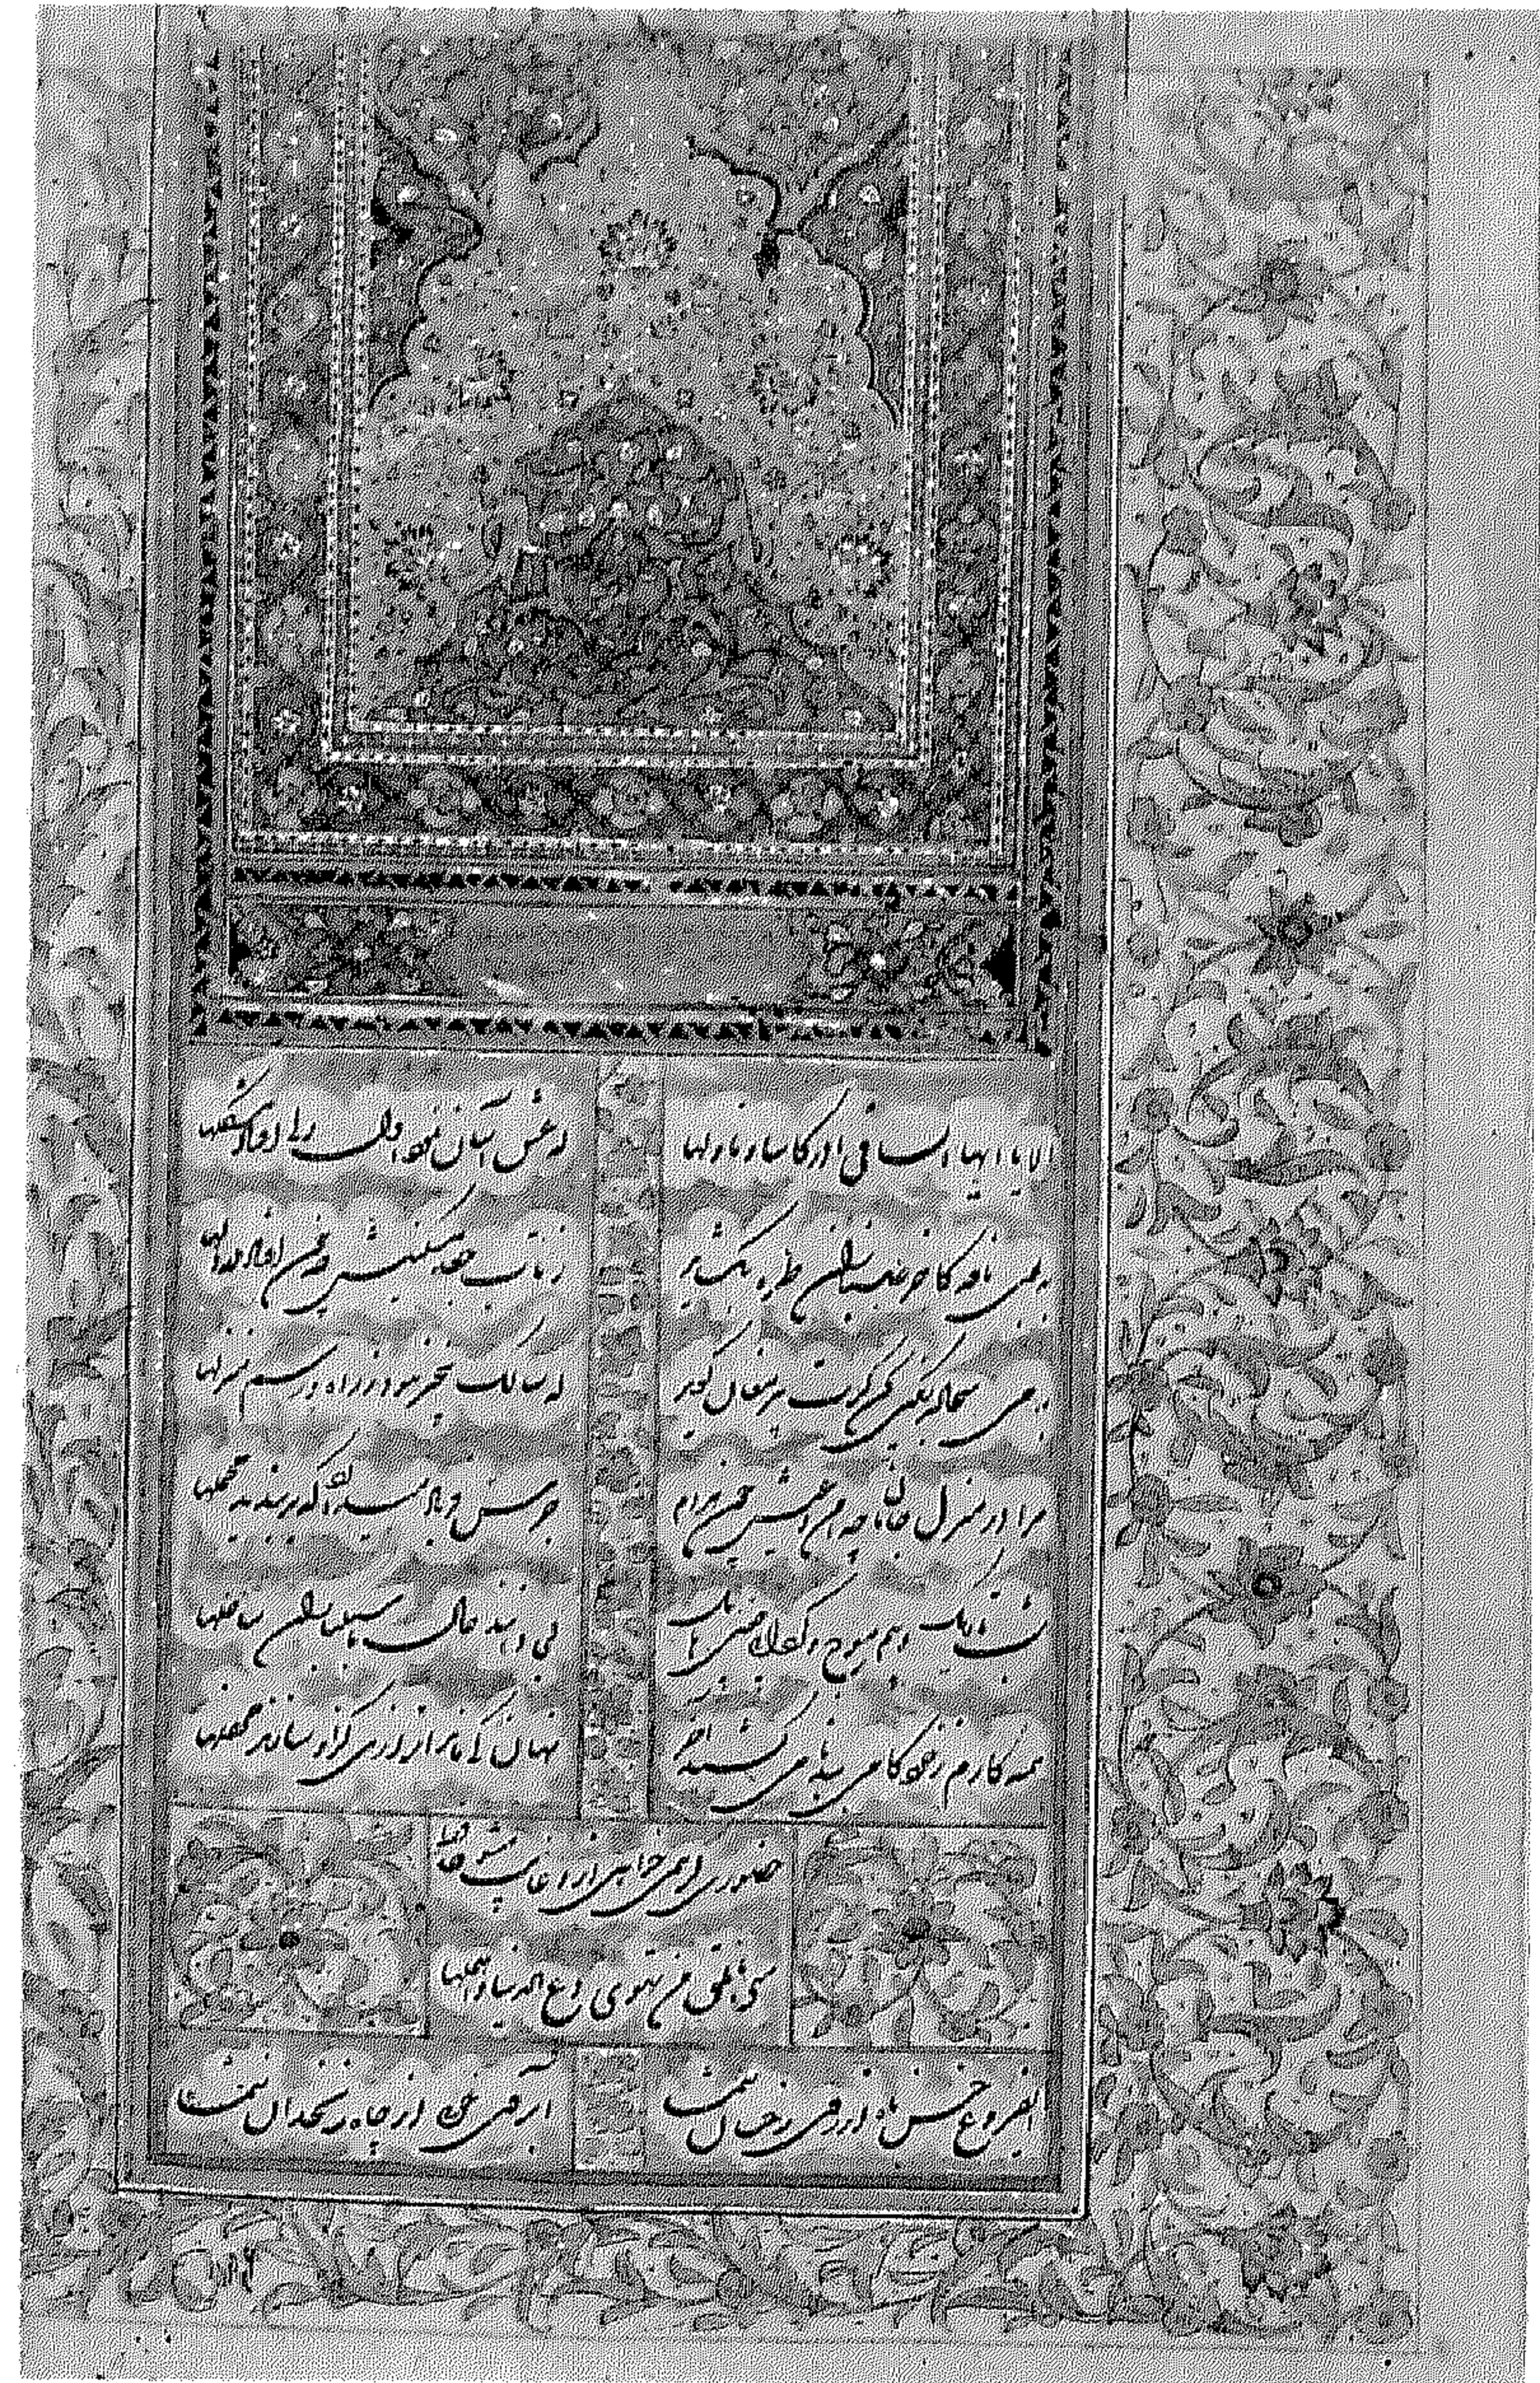 الا یا ایها الساقی ادر کاسا و ناولها که عشق آسان نمود اول ولی افتاد مشکلها
ببوی نافه کاخر صبا زان طره بگشاید ز تاب جعد مشکینش چه خون افتاد در دلها
بمی سجاده رنگین کن گرت پیر مغان گوید که سالک بیخبر نبود ز راه و رسم منزلها
مرا در منزل جانان چه امن عیش چون هر دم جرس فریاد میدارد که بربندید محملها
شب تاریک و بیم موج و گردابی چنین هایل کجا دانند حال ما سبکباران ساحلها
همه کارم ز خود کامی ببدنامی کشید آخر نهان کی ماند آن رازی کزو سازند محفلها
حضوری گر همی خواهی ازو غایب مشو حافظ
متی ما تلق من تهوی دع الدنیا و اهملها
ای فروغ حسن ماه از روی رخشان شما آبروی خوبی از چاه زنخدان شما